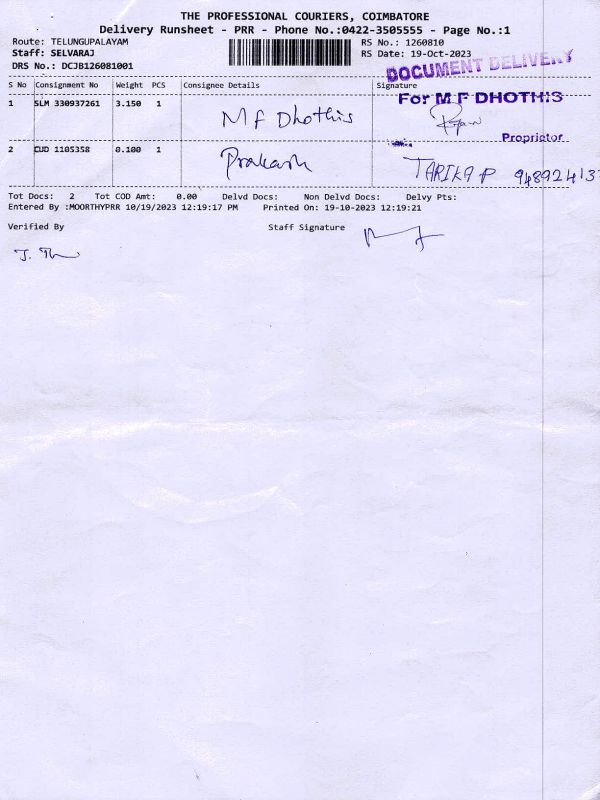 THE PROFESSIONAL COURIERS, COIMBATORE
Delivery Runsheet - PRR - Phone No.:0422-3505555 - Page No.:1
Route: TELUNGUPALAYAM RS No.: 1260810
Staff: SELVARAJ RS Date: 19-Oct-2023
DRS No.: DCJB126081001
DOCUMENT DELIVERY
S No Consignment No Weight PCS Consignee Details Signature
1 SLM 330937261 3.150 1 M F Dhothis For M F DHOTHIS
Proprietor
2 CUD 1105358 0.100 1 Prakash TARIKA P 948924137
Tot Docs: 2 Tot COD Amt: 0.00 Delvd Docs: Non Delvd Docs: Delvy Pts:
Entered By :MOORTHYPRR 10/19/2023 12:19:17 PM Printed On: 19-10-2023 12:19:21
Verified By Staff Signature